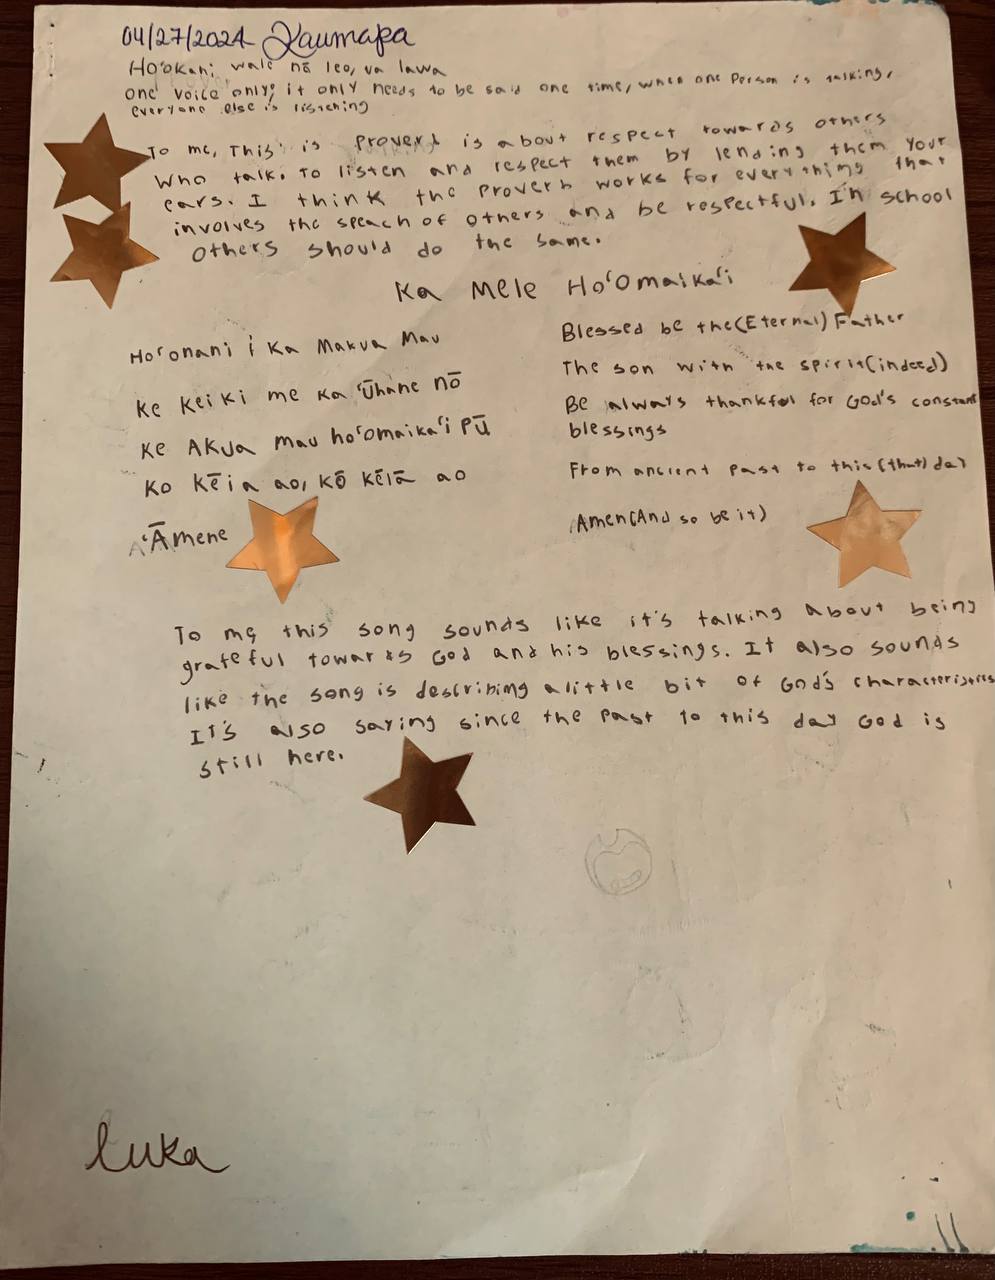 04/27/2024 Kaumaka
Ho'okahi wale nō leo, ua lawa
one voice only; it only needs to be said one time, when one Person is talking,
everyone else is listening
To me, This is Proverb is about respect towards others
Who talk. To listen and respect them by lending them Your
ears. I think the proverb works for everything that
involves the speach of others and be respectful. In school
others should do the same.
Ka Mele Ho'omaika'i
Ho'onani i Ka Makua Mau
Ke Keiki me Ka 'Ūhane nō
Ke AKua mau ho'omaika'i Pū
Ko Kēia ao, Kō Kēlā ao
'Āmene
Blessed be the (Eternal) Father
The son with the spirit (indeed)
Be always thankful for God's constant
blessings
From ancient Past to this (that) day
Amen (And so be it)
To me this song sounds like it's talking about being
grateful towards God and his blessings. It also sounds
like the song is describing a little bit of God's characteristics
It's also saying since the Past to this day God is
still here.
luka